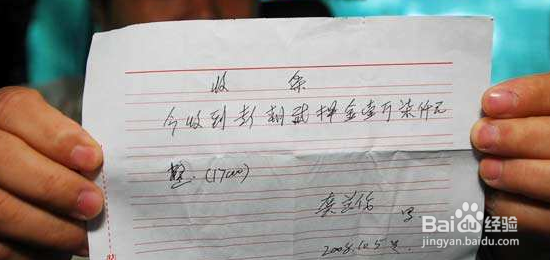 收 条
今收到彭朝武押金壹万柒仟元
整.(17000)
写
2008.10.5号.
Baidu经验
jingyan.baidu.com